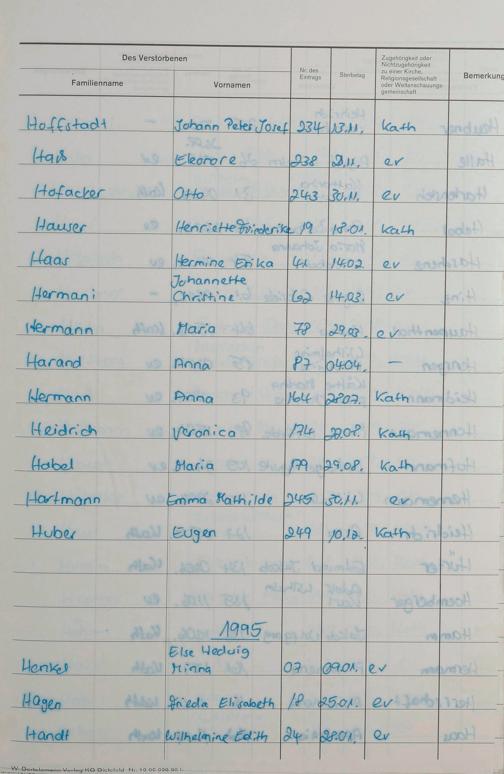 Des Verstorbenen
Familienname Vornamen Nr. des Eintrags Sterbetag Zugehörigkeit oder Nichtzugehörigkeit zu einer Kirche, Religionsgesellschaft oder Weltanschauungsgemeinschaft Bemerkung
Hoffstadt Johann Peter Josef 234 13.11. Kath
Haus Eleonore 238 ev
Hofacker Otto 243 30.11. ev
Hauser Henriette Friederike 19 18.01. Kath
Haas Hermine Erika 41 14.02. ev
Johannette
Hermani Christine 62 14.03. ev
Hermann Maria 78 29.03. ev
Harand Anna 87 04.04. –
Hermann Anna 164 28.07. Kath
Heidrich Veronica 174 Kath
Habel Maria 179 29.08. Kath
Hartmann Emma Mathilde 245 30.11. ev
Huber Eugen 249 10.12. Kath
1995
Else Hedwig
Henkel Minna 07 09.01. ev
Hagen Frieda Elisabeth 18 25.01. ev
Handt Wilhelmine Edith 24 28.01. ev